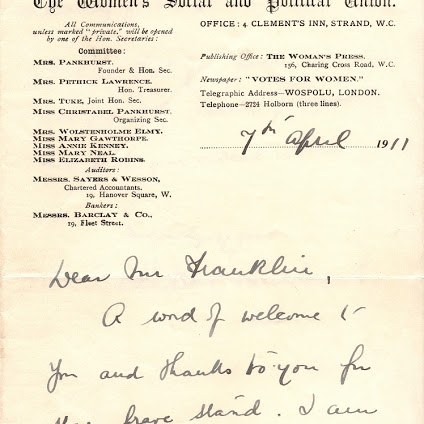 The Women's Social and Political Union.
OFFICE: 4, CLEMENT'S INN, STRAND, W.C.
All Communications,
unless marked "private," will be opened
by one of the Hon. Secretaries:
Committee:
MRS. PANKHURST,
Founder & Hon. Sec.
MRS. PETHICK LAWRENCE,
Hon. Treasurer.
MRS. TUKE, Joint Hon. Sec.
MISS CHRISTABEL PANKHURST,
Organizing Sec.
MRS. WOLSTENHOLME ELMY,
MISS MARY GAWTHORPE,
MISS ANNIE KENNEY,
MISS MARY NEAL,
MISS ELIZABETH ROBINS.
Auditors:
MESSRS. SAYERS & WESSON,
Chartered Accountants,
19, Hanover Square, W.
Bankers:
MESSRS. BARCLAY & CO.,
19, Fleet Street.
Publishing Office: THE WOMAN'S PRESS,
156, Charing Cross Road, W.C.
Newspaper: "VOTES FOR WOMEN."
Telegraphic Address—WOSPOLU, LONDON.
Telephone—2724 Holborn (three lines).
7th April 1911
Dear Mr Franklin,
A word of welcome to
you and thanks to you for
your brave stand. I am